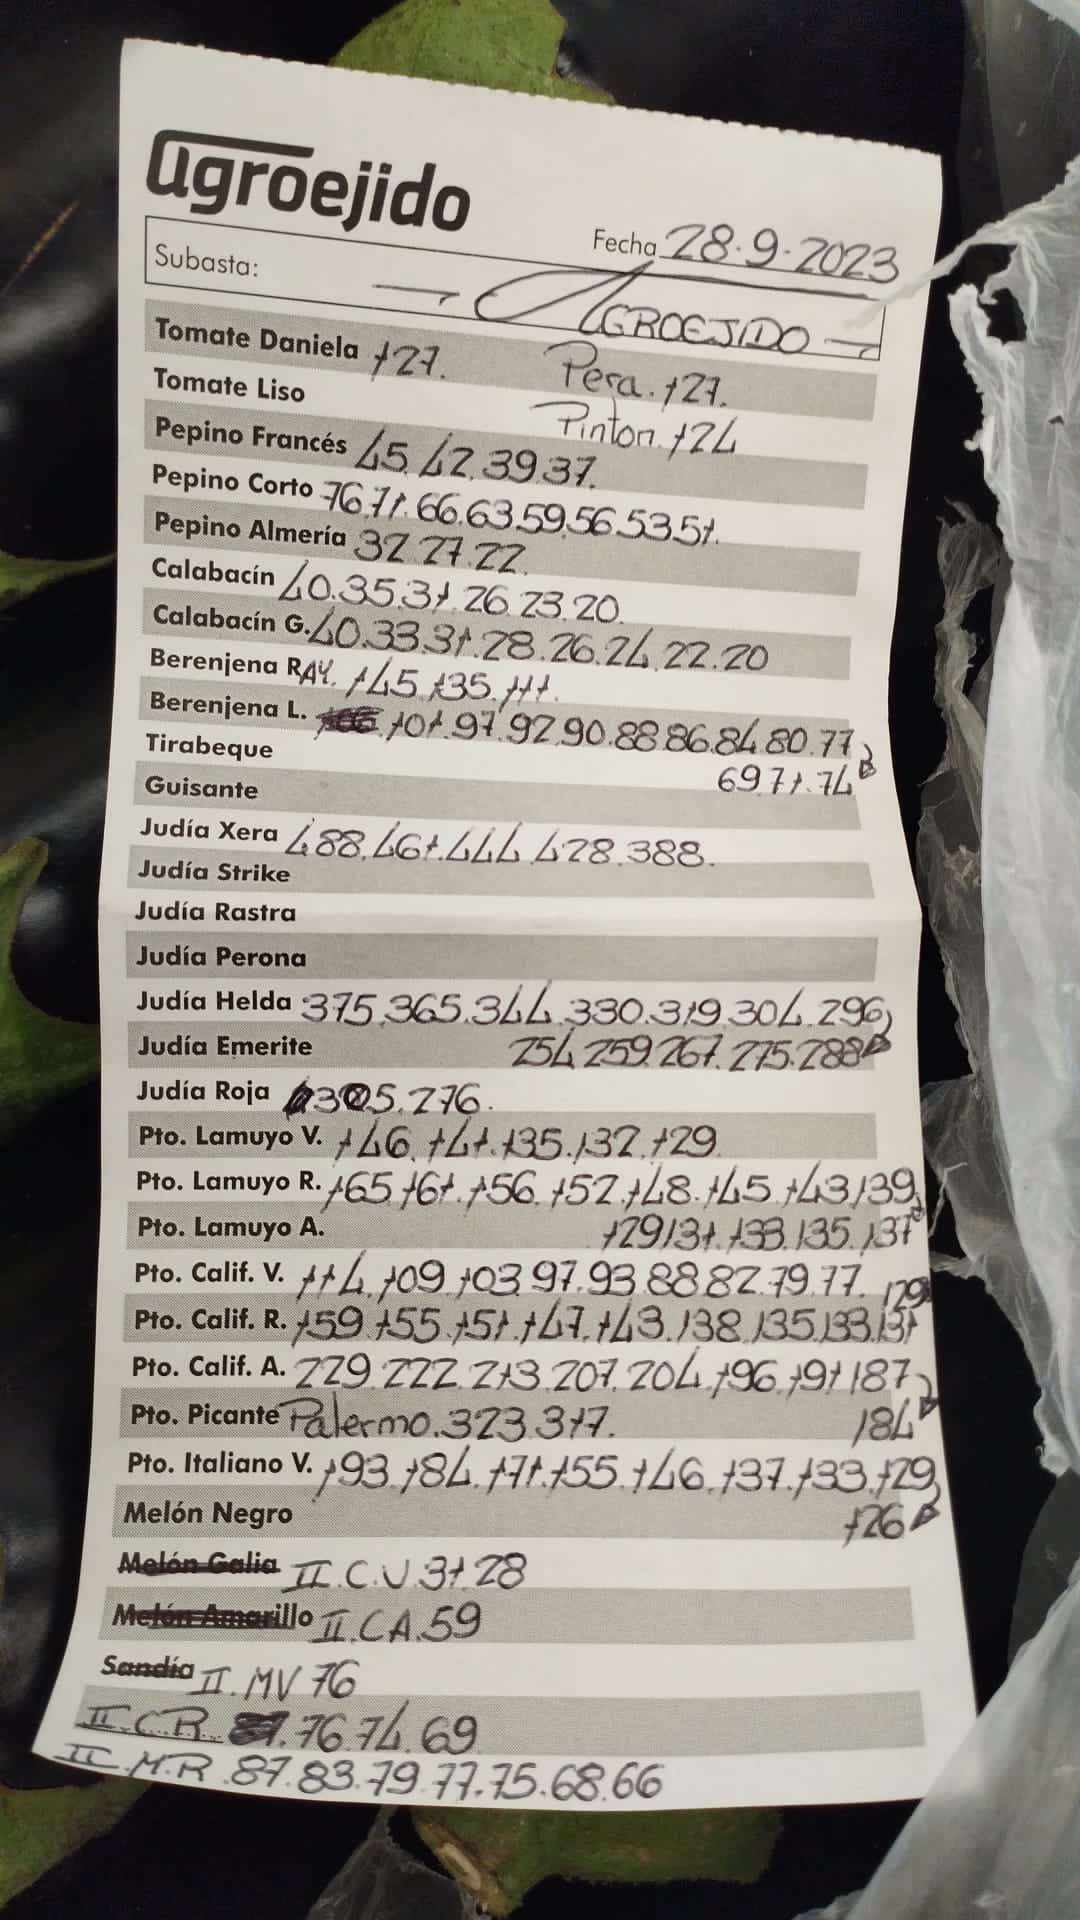 agroejido
Fecha 28.9.2023
Subasta: AGROEJIDO
Tomate Daniela 127. Pera. 127.
Tomate Liso Pinton. 124
Pepino Francés 45.42.39.37.
Pepino Corto 76.71.66.63.59.56.53.51.
Pepino Almería 32.27.22.
Calabacín 40.35.31.26.23.20.
Calabacín G. 40.33.31.28.26.24.22.20
Berenjena RAY. 145.135.111.
Berenjena L. 101.97.92.90.88.86.84.80.77
Tirabeque 69.71.74
Guisante
Judía Xera 488.461.444.428.388.
Judía Strike
Judía Rastra
Judía Perona
Judía Helda 375.365.344.330.319.304.296
Judía Emerite 254.259.267.275.288
Judía Roja 305.276.
Pto. Lamuyo V. 146.141.135.132.129
Pto. Lamuyo R. 165.161.156.152.148.145.143.139
Pto. Lamuyo A. 129.131.133.135.137
Pto. Calif. V. 114.109.103.97.93.88.82.79.77.
129
Pto. Calif. R. 159.155.151.147.143.138.135.133.131
Pto. Calif. A. 229.222.213.207.204.196.191.187
Pto. Picante Palermo.323.317. 184
Pto. Italiano V. 193.184.171.155.146.137.133.129
Melón Negro 126
Melón Galia II.C.V.31.28
Melón Amarillo II.CA.59
Sandía II.MV 76
II.C.R. 76.74.69
II.M.R.87.83.79.77.75.68.66